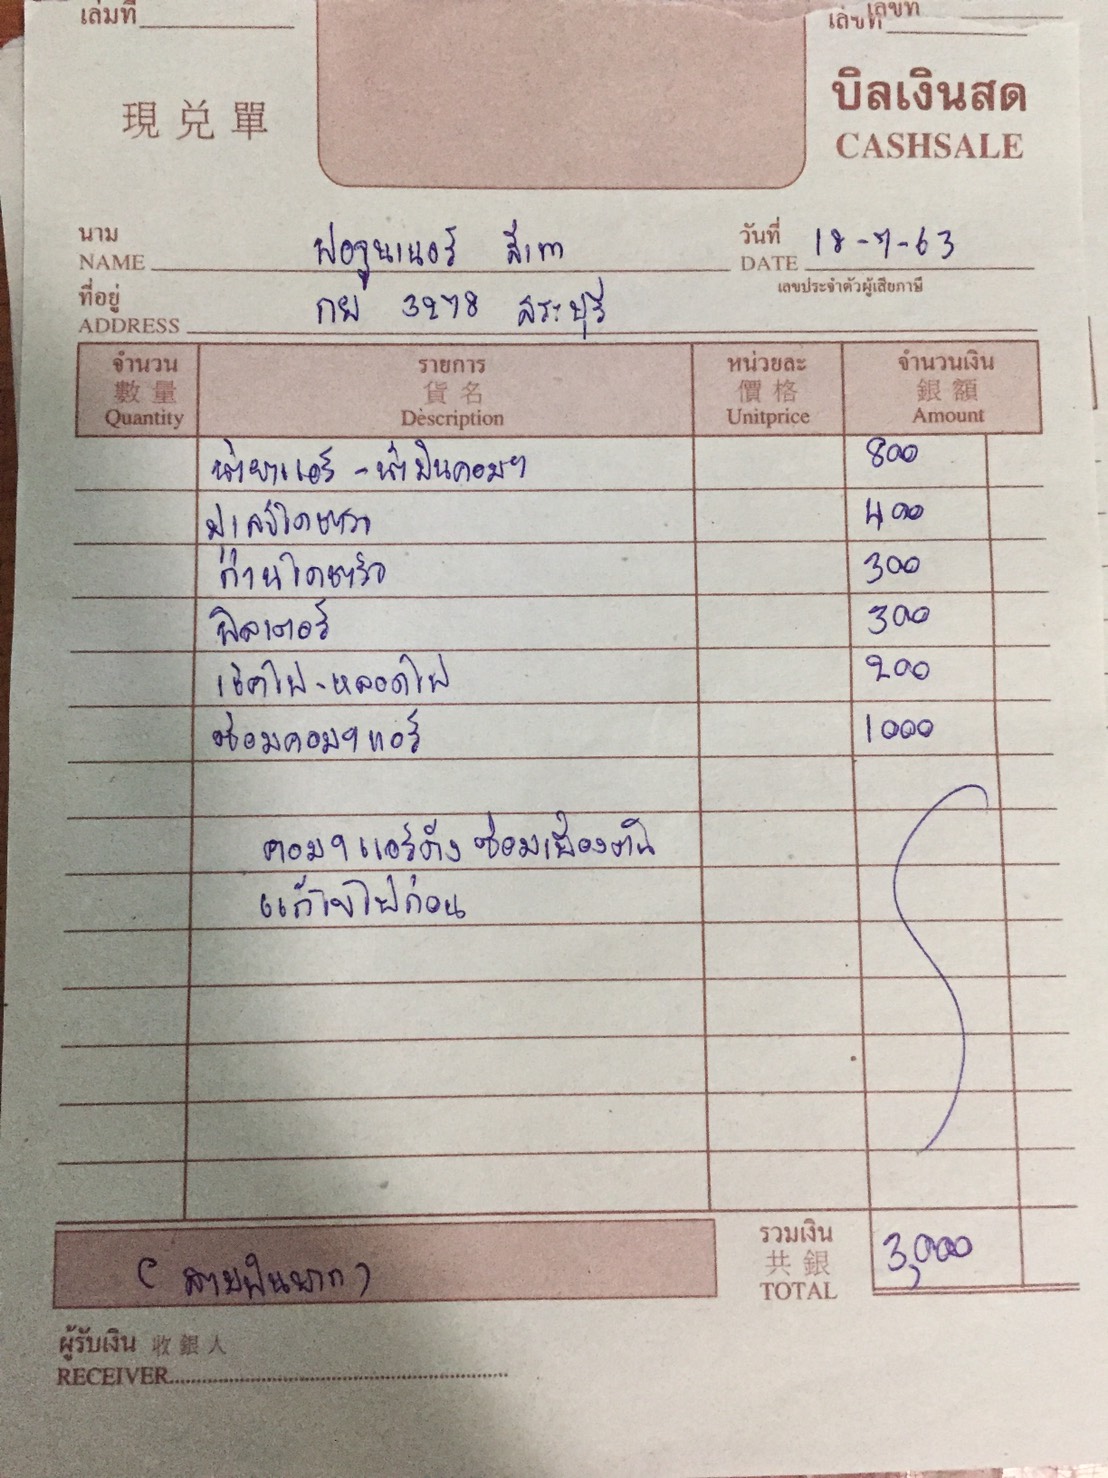 เล่มที่
เลขที่
เลขที่
現兑單
บิลเงินสด
CASHSALE
นาม
NAME
ฟอจูนเนอร์ สีเทา
วันที่
DATE
18-7-63
เลขประจำตัวผู้เสียภาษี
ที่อยู่
ADDRESS
กย 3278 สระบุรี
จำนวน รายการ หน่วยละ จำนวนเงิน
數量 貨名 價格 銀額
Quantity Description Unitprice Amount
น้ำยาแอร์ - น้ำมันคอมฯ 800
มาสดไดชาร์จ 400
ถ่านไดชาร์จ 300
ฟิลเตอร์ 300
เช็คไฟ - หลอดไฟ 200
ซ่อมคอมฯแอร์ 1000
คอมฯแอร์ดัง ซ่อมเบื้องต้น
แก้ไขไปก่อน
รวมเงิน
共銀
TOTAL
3,000
(สามพันบาท)
ผู้รับเงิน 收銀人
RECEIVER